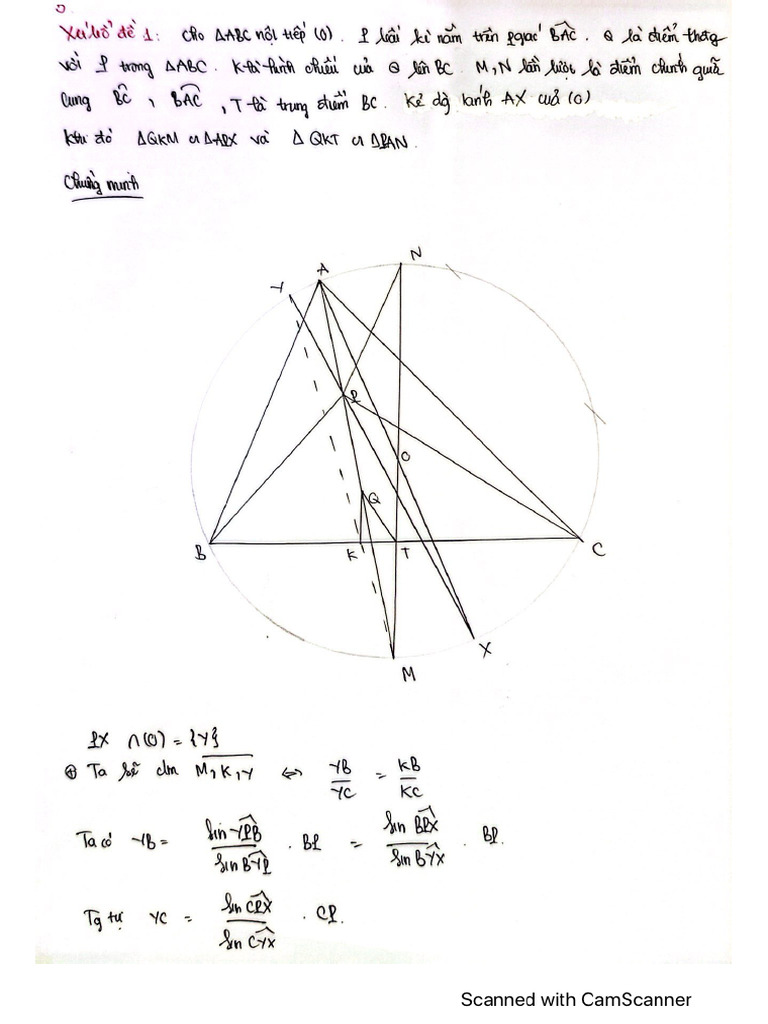 Xét bổ đề 1: Cho ΔABC nội tiếp (O). P bất kì nằm trên pgiác BAC. Q là điểm
với P trong ΔABC. K là hình chiếu của Q lên BC. M, N lần lượt là điểm chính giữa
cung BC, BAC, T là trung điểm BC. Kẻ đg kính AX của (O)
Khi đó ΔQKM ∽ ΔAPX và ΔQKT ∽ ΔPAN.
Chứng minh
A
N
Y
P
O
Q
B
K
T
C
X
M
PX ∩ (O) = {Y}
⊕ Ta sẽ cm M, K, Y ⇔ YB/YC = KB/KC
Ta có YB = sin YPB / sin BYP . BP = sin BPX / sin BYX . BP.
Tg tự YC = sin CPX / sin CYX . CP.
Scanned with CamScanner